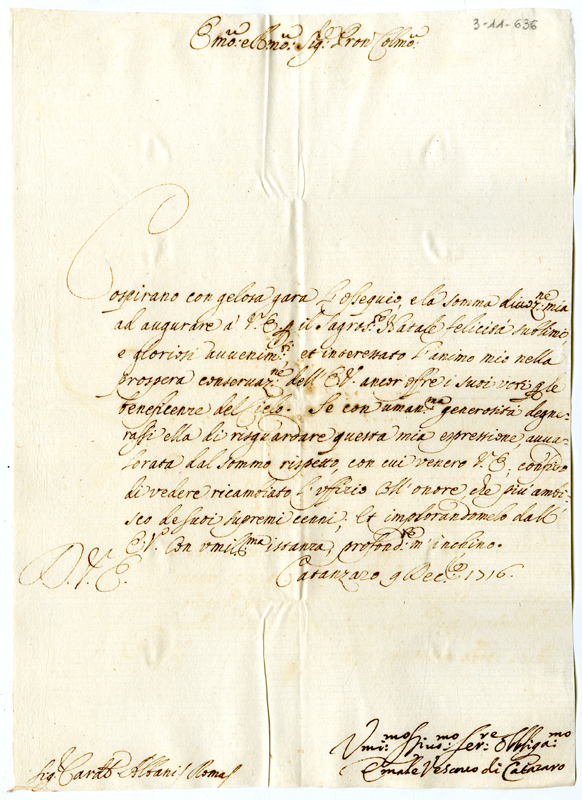 3-11-636
Emo: e Rmo: Sig.r Pron Colmo:
Cospirano con gelosa gara l'Ossequio, e la somma divoz:ne mia
ad augurare a' V.a E. p il Sagros:to Natale felicità sublimi,
e gloriosi avvenim:ti; et interessato l'animo mio nella
prospera conservaz:ne dell'E.V. ancor offre i suoi voti p le
beneficenze del Cielo. Se con uman:ma generosità degne-
rassi ella di risguardare questa mia espressione avva-
lorata dal sommo rispetto, con cui venero V.E., confido
di vedere ricambiato l'uffizio coll'onore che più ambi-
sco de suoi supremi cenni; Et implorandomelo dall'
E.V. con umil:ma istanza, profond:te m'inchino.
D. V. E. Catanzaro 9 Dec.e 1716.
Umi:mo Divo:mo Ser:re Obbliga:mo
Vescovo di Catazaro
Sig.r Card.l Albani / Roma /